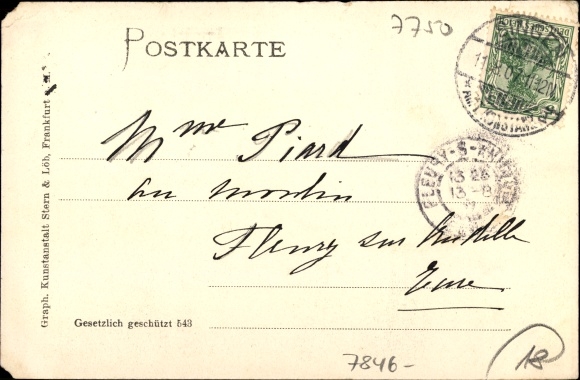 7750
POSTKARTE
Mme Piard
au moulin
Fleury sur Andelle
Eure
FLEURY-S-ANDELLE
13
Graph. Kunstanstalt Stern & Löb, Frankfurt a. M.
Gesetzlich geschützt 543
7846-
18